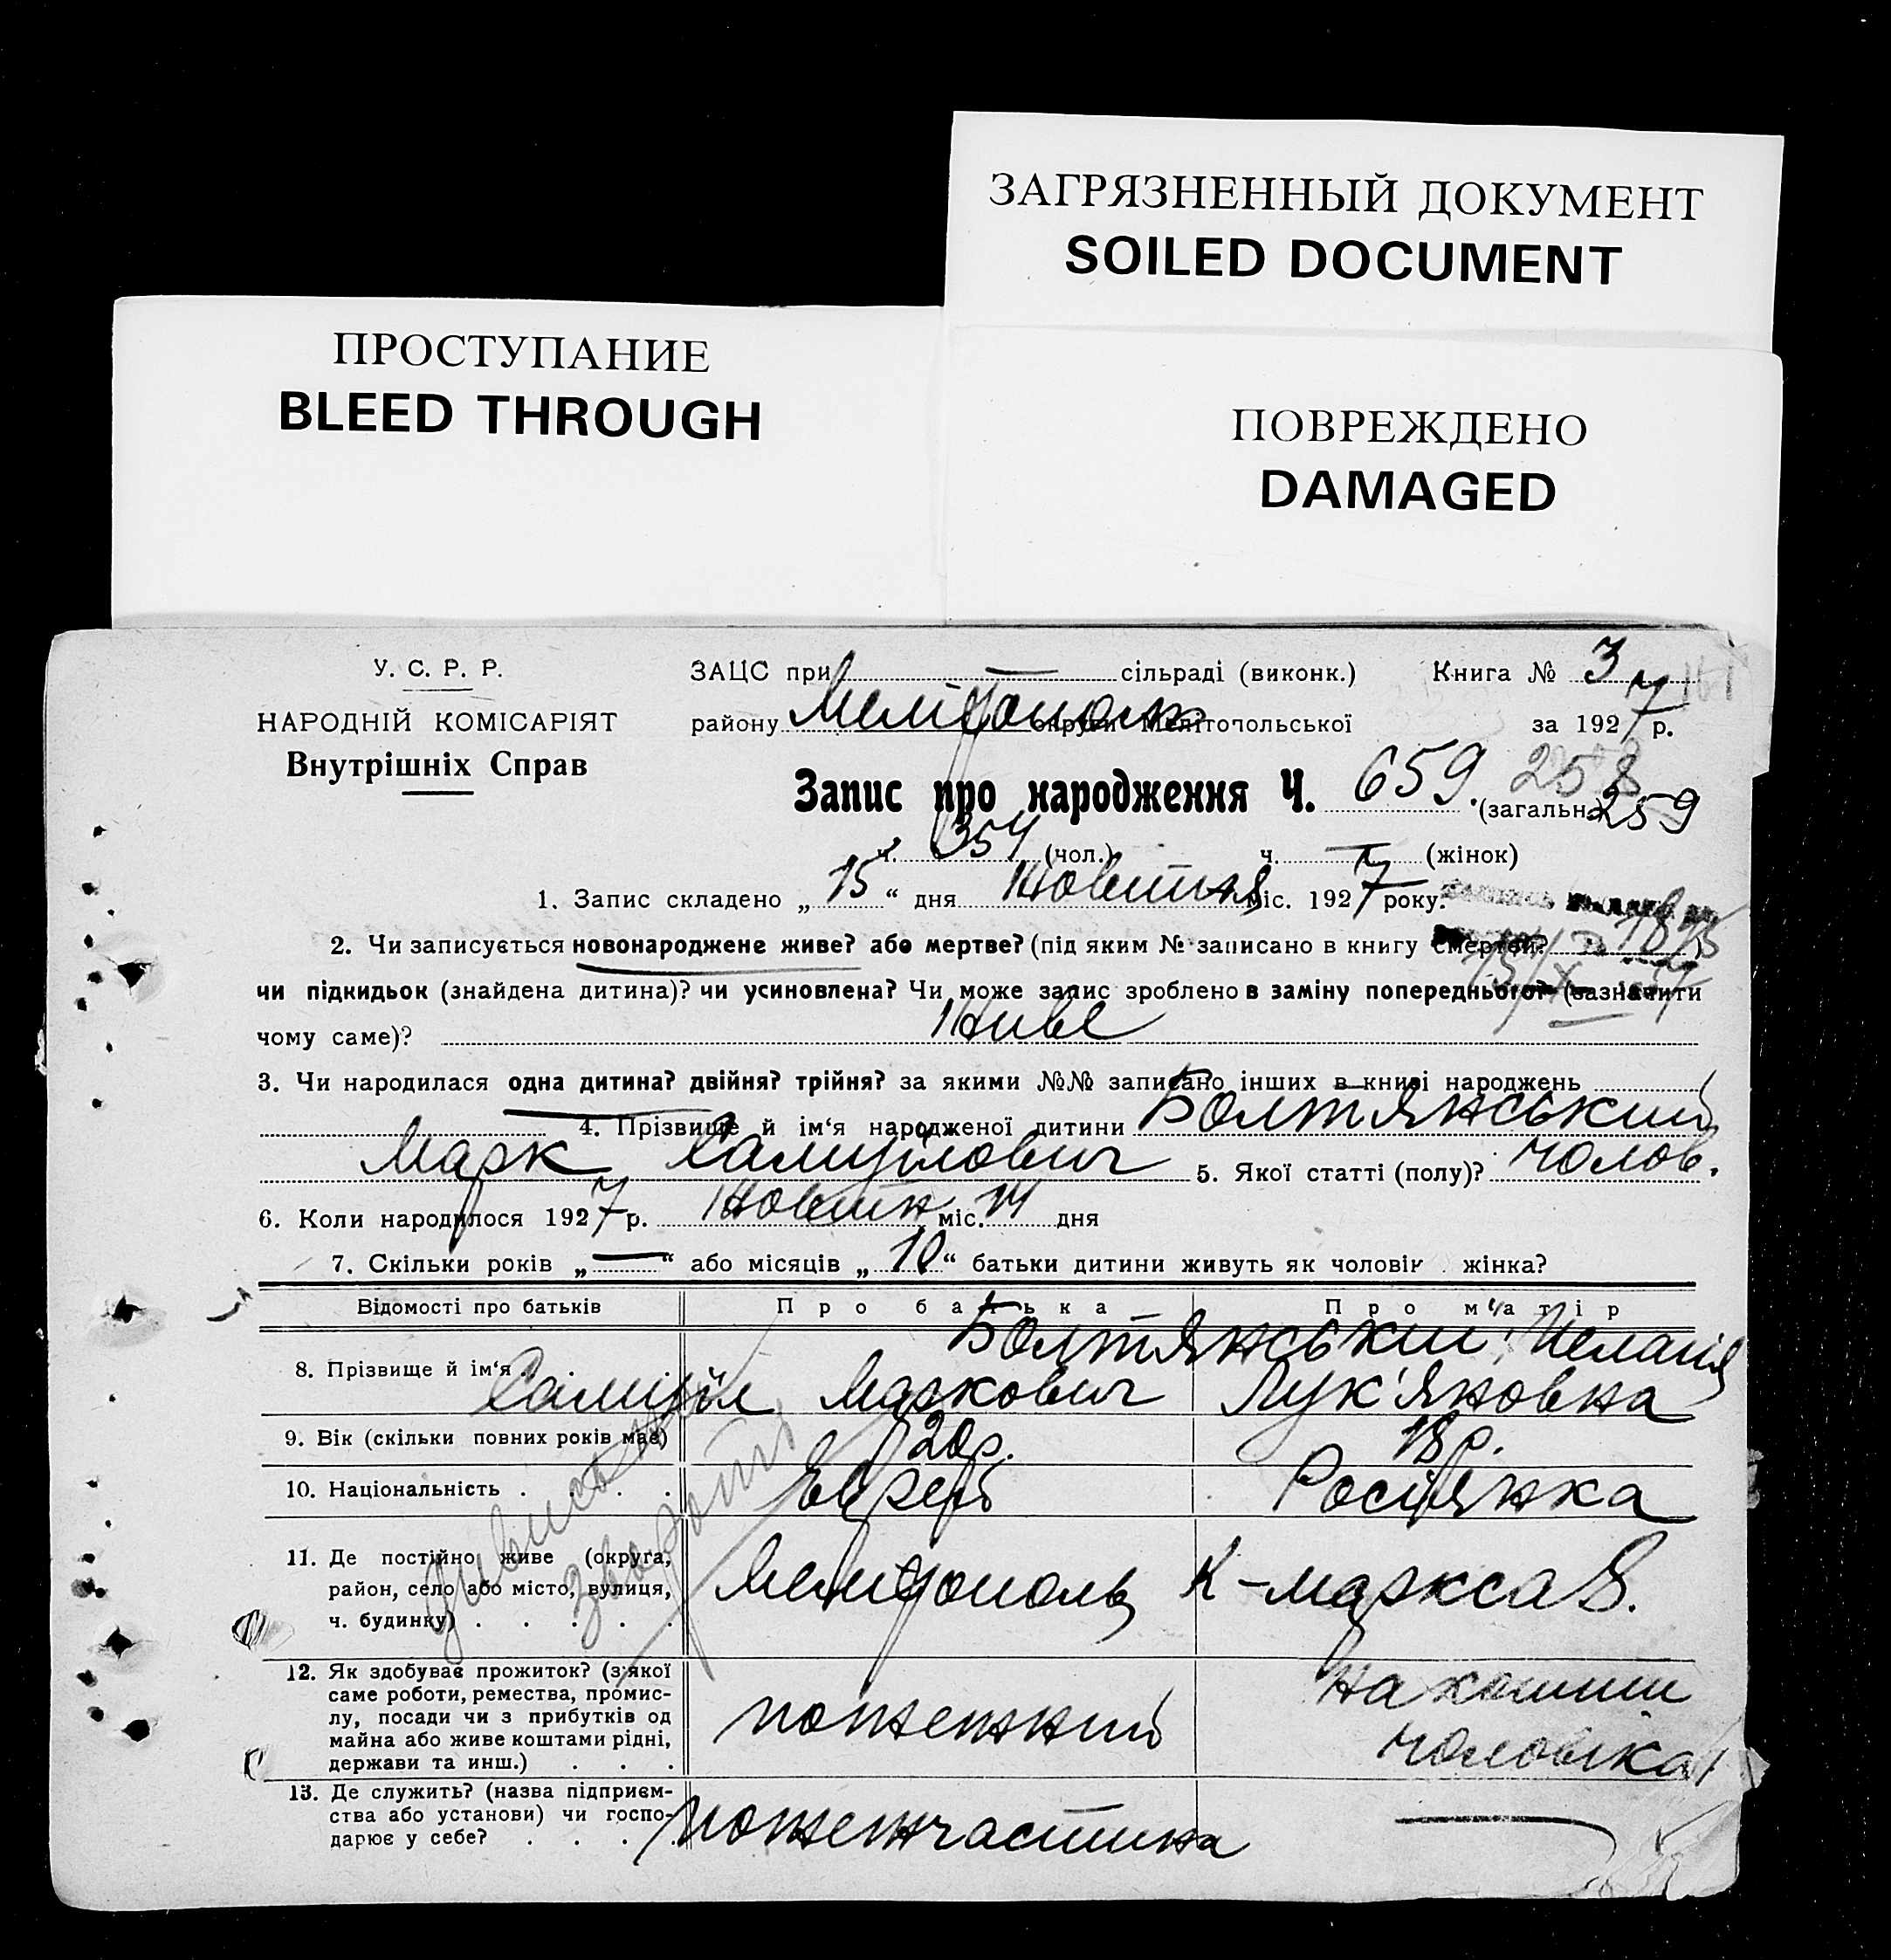 ЗАГРЯЗНЕННЫЙ ДОКУМЕНТ
SOILED DOCUMENT
ПРОСТУПАНИЕ
BLEED THROUGH
ПОВРЕЖДЕНО
DAMAGED
У. С. Р. Р.
НАРОДНІЙ КОМІСАРІЯТ
Внутрішніх Справ
ЗАЦС при — сільраді (виконк.) Книга № 3
району Мелітопольськ округи Мелітопольської за 1927 р.
Запис про народження Ч. 659. (загальн.) 258 259
ч. 354 (чол.) ч. — (жінок)
1. Запис складено „15“ дня Жовтня міс. 1927 року.
2. Чи записується новонароджене живе? або мертве? (під яким № записано в книгу смертей?
чи підкидьок (знайдена дитина)? чи усиновлена? Чи може запис зроблено в заміну попереднього? (зазначити
чому саме)? Живе
3. Чи народилася одна дитина? двійня? трійня? за якими №№ записано інших в книзі народжень
4. Прізвище й ім‘я народженої дитини Болтянський
Марк Самуїлович 5. Якої статті (полу)? чолов.
6. Коли народилося 1927 р. Жовтн міс. 14 дня
7. Скільки років „—“ або місяців „10“ батьки дитини живуть як чоловік жінка?
Відомості про батьків Про батька Про матір
8. Прізвище й ім‘я Болтянський Самуїл Маркович Пелагія Лук'яновна
9. Вік (скільки повних років має) 20 р. 18 р.
10. Національність Єврей Росіянка
11. Де постійно живе (округа,
район, село або місто, вулиця,
ч. будинку) Мелітополь К-Маркса 8.
12. Як здобуває прожиток? (з якої
саме роботи, ремества, промис-
лу, посади чи з прибутків од
майна або живе коштами рідні,
держави та инш.) пожежний на кошти чоловіка
13. Де служить? (назва підприєм-
ства або установи) чи госпо-
дарює у себе? Пожежчастина —
дивись на звороті